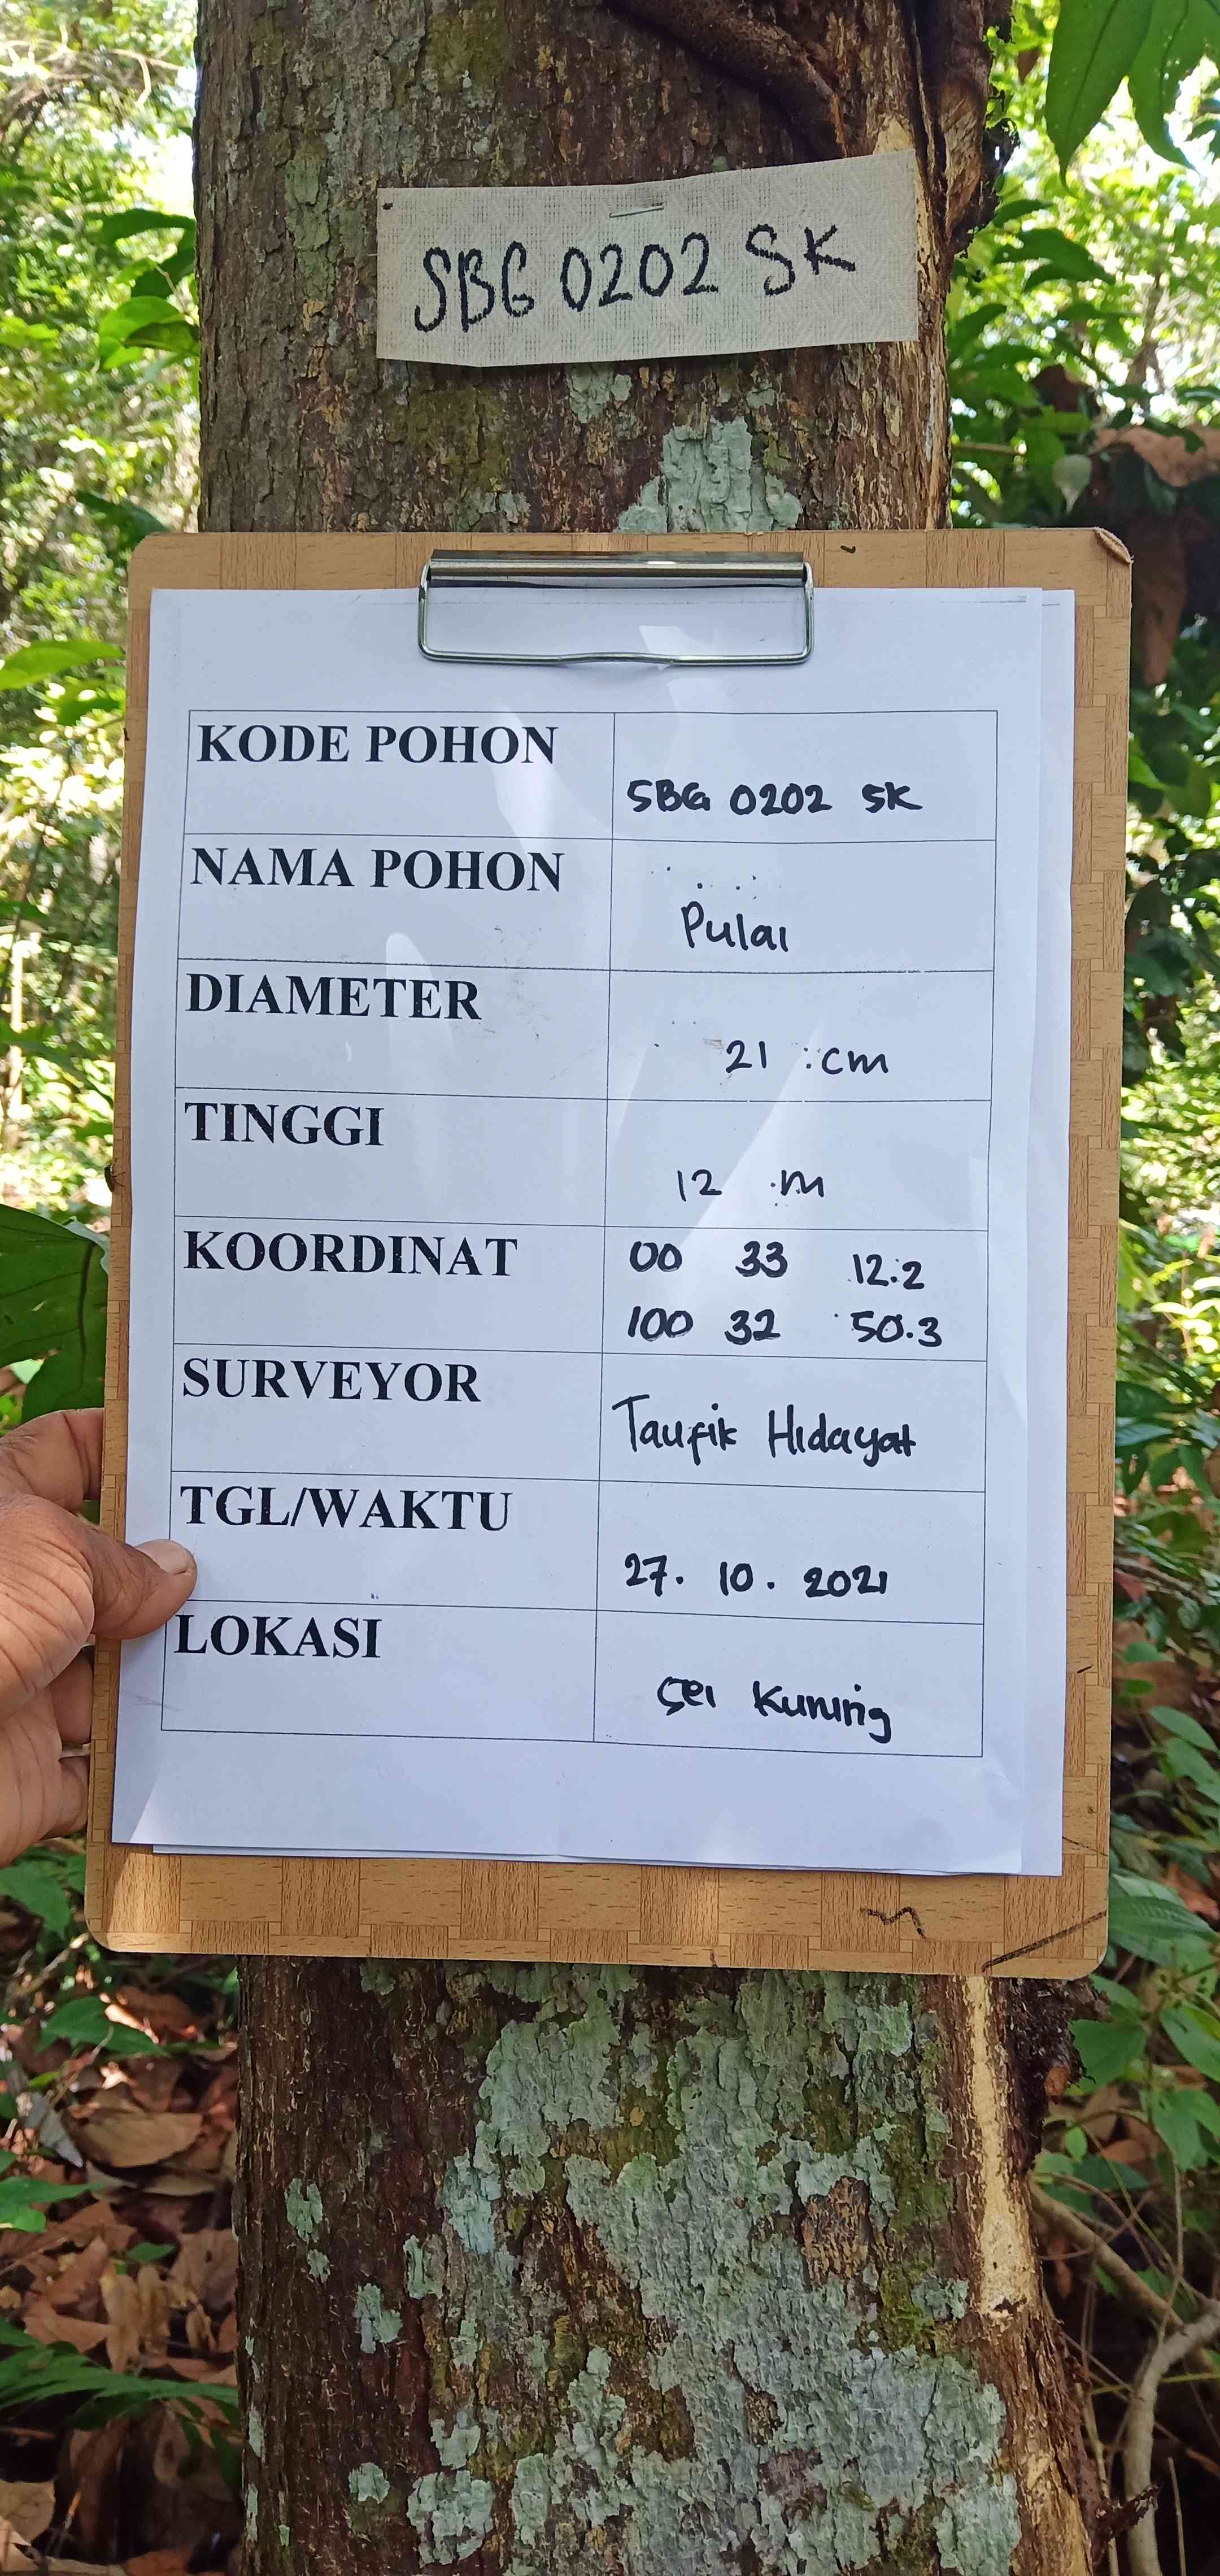 SBG 0202 SK
KODE POHON
SBG 0202 SK
NAMA POHON
Pulai
DIAMETER
21 cm
TINGGI
12 m
KOORDINAT
00 33 12.2
100 32 50.3
SURVEYOR
Taufik Hidayat
TGL/WAKTU
27. 10. 2021
LOKASI
Sei Kuning